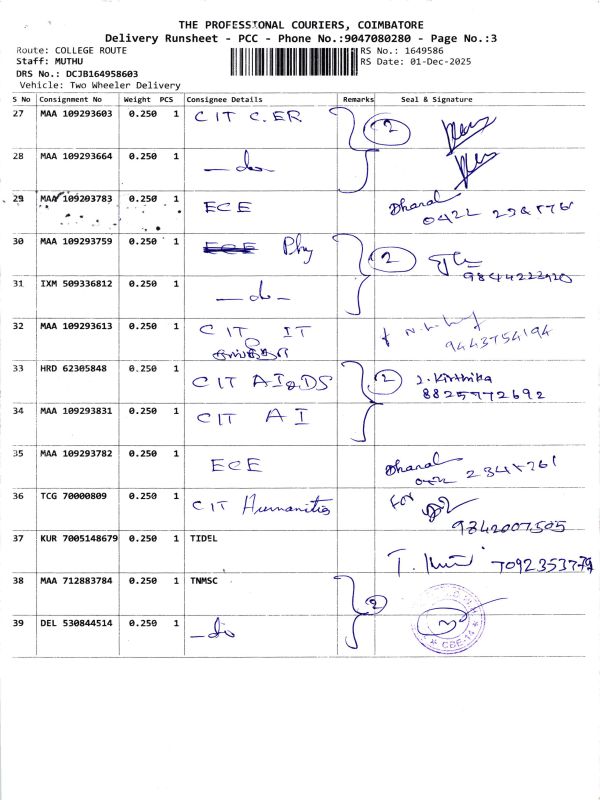 THE PROFESSIONAL COURIERS, COIMBATORE
Delivery Runsheet - PCC - Phone No.:9047080280 - Page No.:3
Route: COLLEGE ROUTE
RS No.: 1649586
Staff: MUTHU
RS Date: 01-Dec-2025
DRS No.: DCJB164958603
Vehicle: Two Wheeler Delivery
S No Consignment No Weight PCS Consignee Details Remarks Seal & Signature
27 MAA 109293603 0.250 1 CIT C.ER 2
28 MAA 109293664 0.250 1 — do —
29 MAA 109293783 0.250 1 ECE Dharal
0422
30 MAA 109293759 0.250 1 ECE Phy 2
9844222920
31 IXM 509336812 0.250 1 — do —
32 MAA 109293613 0.250 1 CIT IT
9443754194
33 HRD 62305848 0.250 1 CIT AI&DS 2 J. Kirthika
8825772692
34 MAA 109293831 0.250 1 CIT AI
35 MAA 109293782 0.250 1 ECE Dharal
36 TCG 70000809 0.250 1 CIT Humanities For
9842007505
37 KUR 7005148679 0.250 1 TIDEL T.
38 MAA 712883784 0.250 1 TNMSC 2
39 DEL 530844514 0.250 1 — do
CBE-14